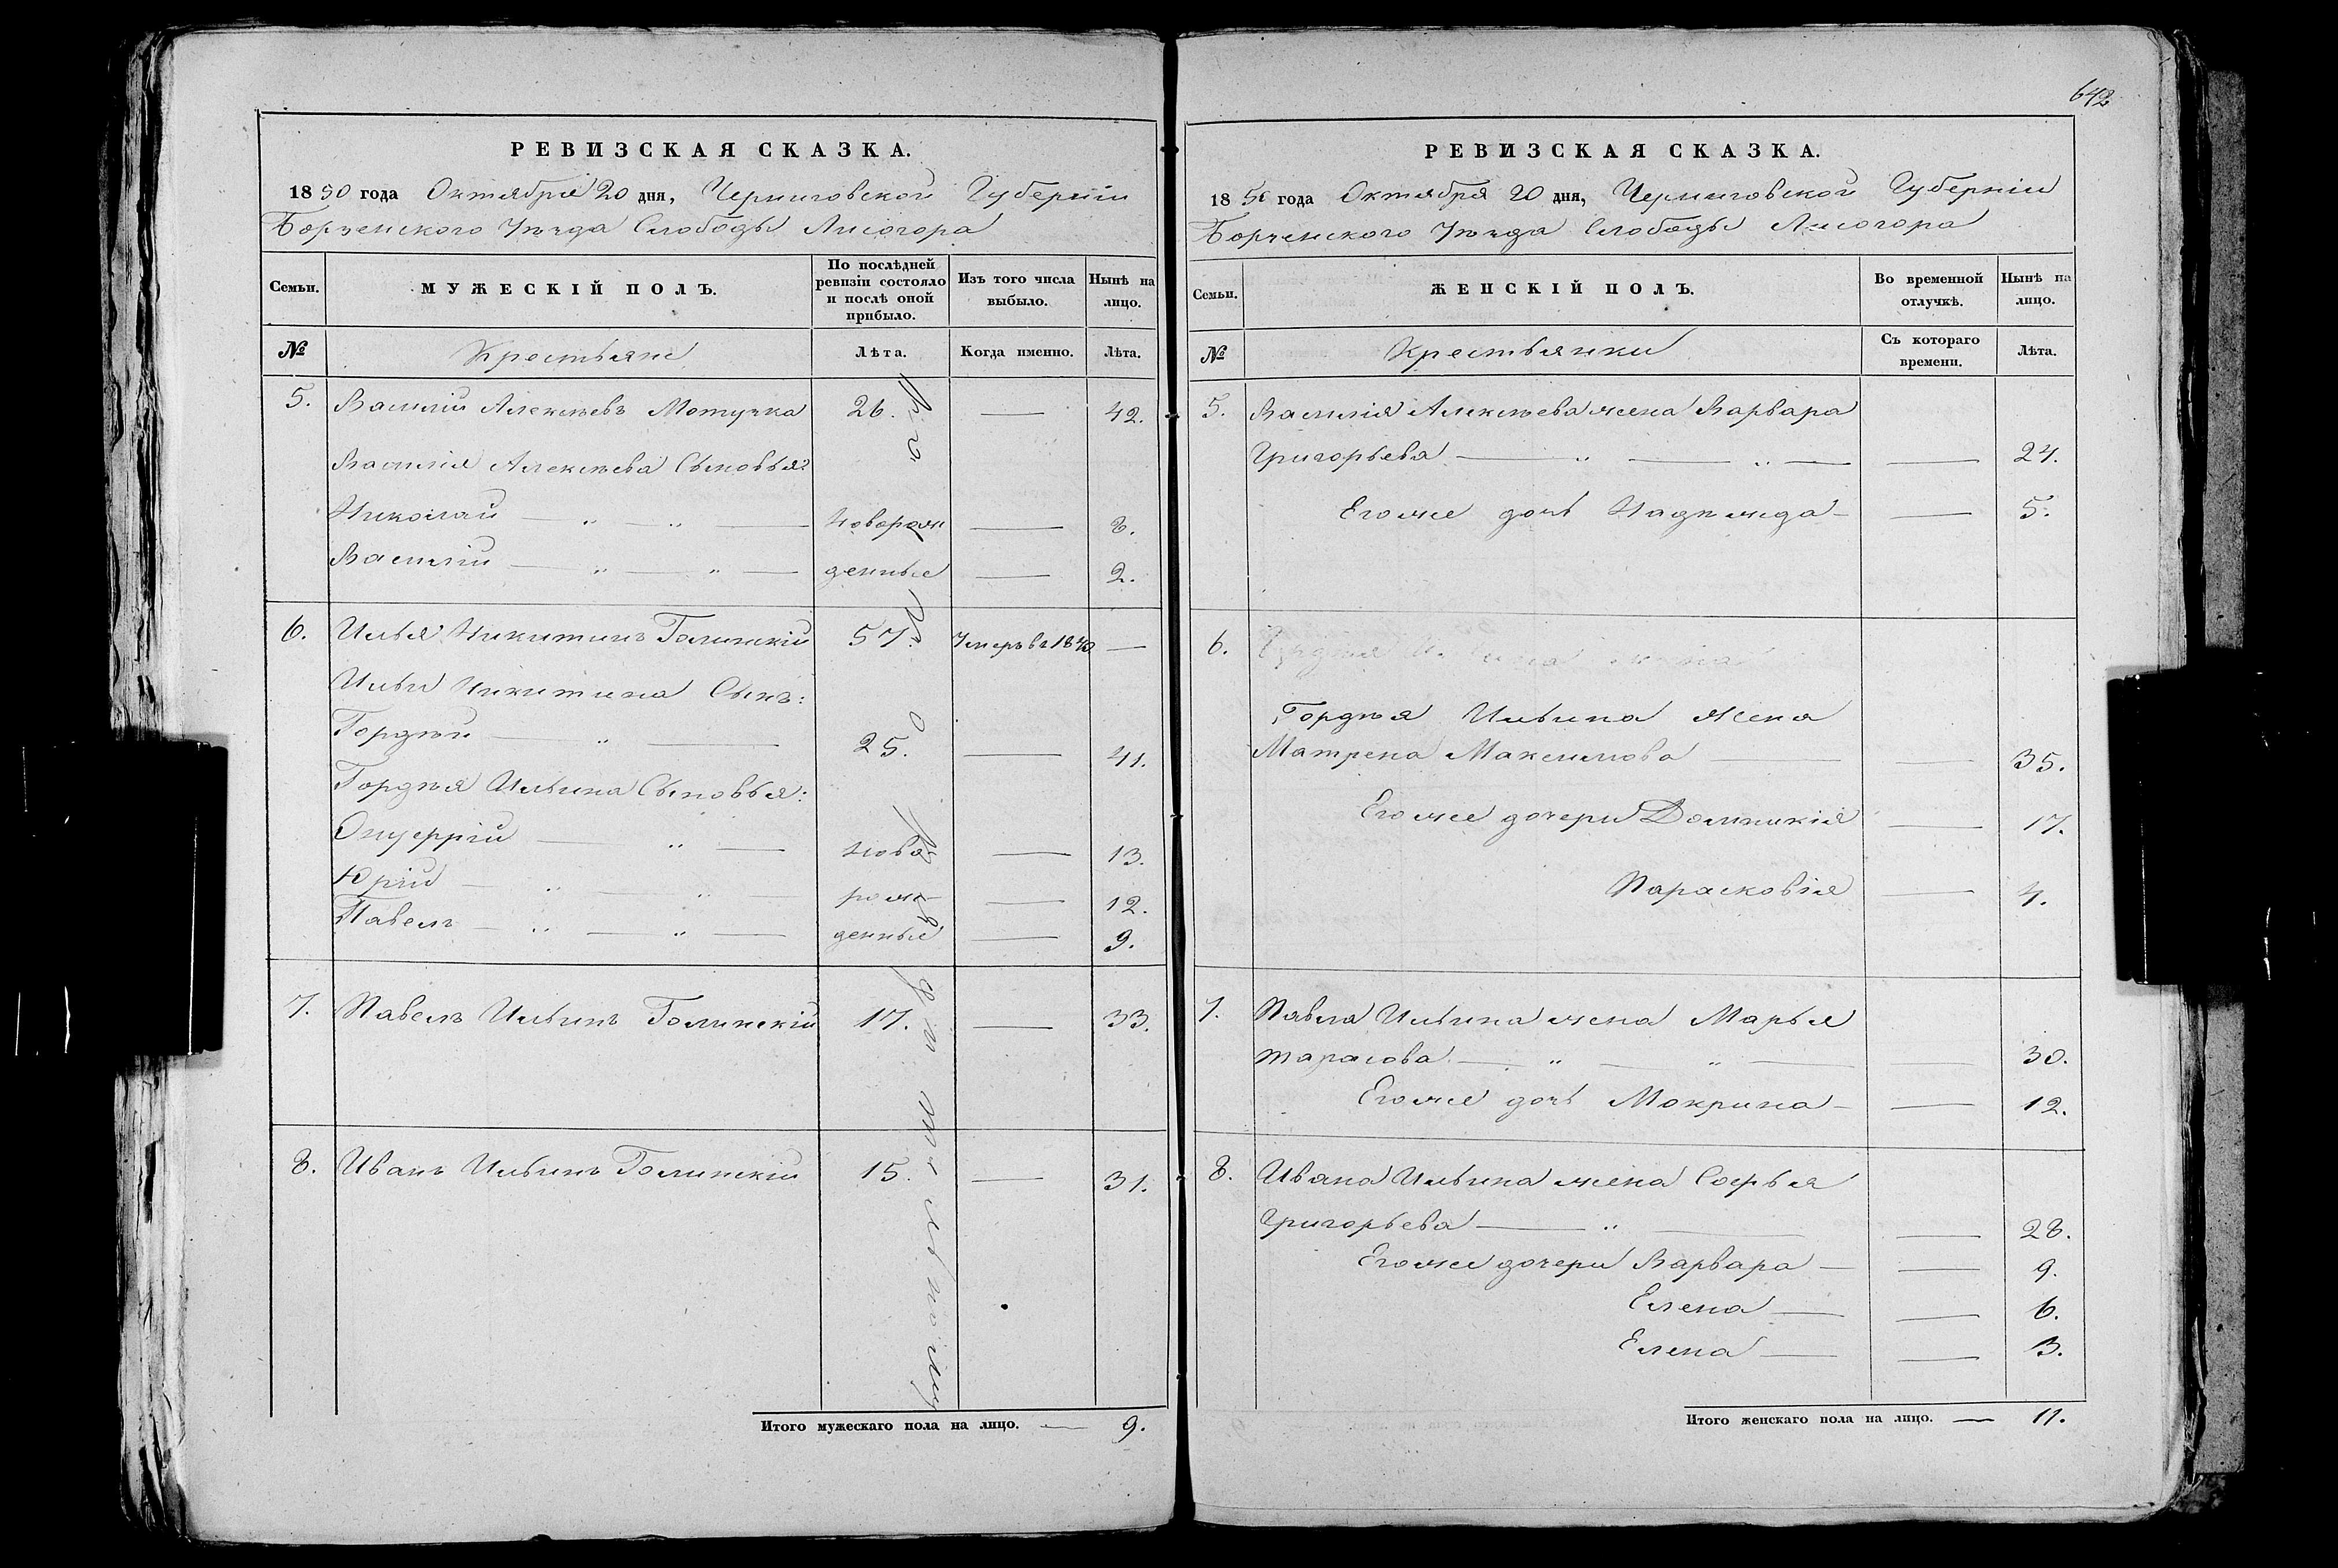 642
РЕВИЗСКАЯ СКАЗКА.
1850 года Октября 20 дня, Черниговской Губернiи
Борзенского Уѣзда Слободы Лисогора
Семьи. МУЖЕСКIЙ ПОЛЪ. По послѣдней ревизiи состояло и послѣ оной прибыло. Изъ того числа выбыло. Нынѣ на лицо.
№ Крестьяне Лѣта. Когда именно. Лѣта.
5. Василiй Алексѣевъ Мотузка 26. — 42.
Василiя Алексѣева Сыновья:
Николай — „ — „ — новорож — 8.
Василiй — „ — „ — денные — 2.
6. Илья Никитинъ Голинскiй 57. Умеръ въ 1840 —
Ильи Никитина Сынъ:
Гордѣй — „ — 25. — 41.
Гордѣя Ильина Сыновья:
Онуфрiй — „ — ново — 13.
Юрiй — „ — „ — рож- — 12.
Павелъ — „ — „ — денные — 9.
7. Павелъ Ильинъ Голинскiй 17. — 33.
8. Иванъ Ильинъ Голинскiй 15. — 31.
Итого мужескаго пола на лицо. — 9.
РЕВИЗСКАЯ СКАЗКА.
1850 года Октября 20 дня, Черниговской Губернiи
Борзенского Уѣзда Слободы Лисогора
Семьи. ЖЕНСКIЙ ПОЛЪ. Во временной отлучкѣ. Нынѣ на лицо.
№ Крестьянки Съ котораго времени. Лѣта.
5. Василiя Алексѣева жена Варвара
Григорьева — „ — „ — — 24.
Его же дочь Надѣжда — — 5.
6.
Гордѣя Ильина жена
Матрена Максимова — — 35.
Его же дочери Домникiя — 17.
Парасковiя — 4.
7. Павла Ильина жена Марья
тарасова — „ — „ — — 30.
Его же дочь Мокрина — — 12.
8. Ивана Ильина жена Софья
Григорьева — „ — — 28.
Его же дочери Варвара — — 9.
Елена — — 6.
Елена — — 3.
Итого женскаго пола на лицо. — 11.